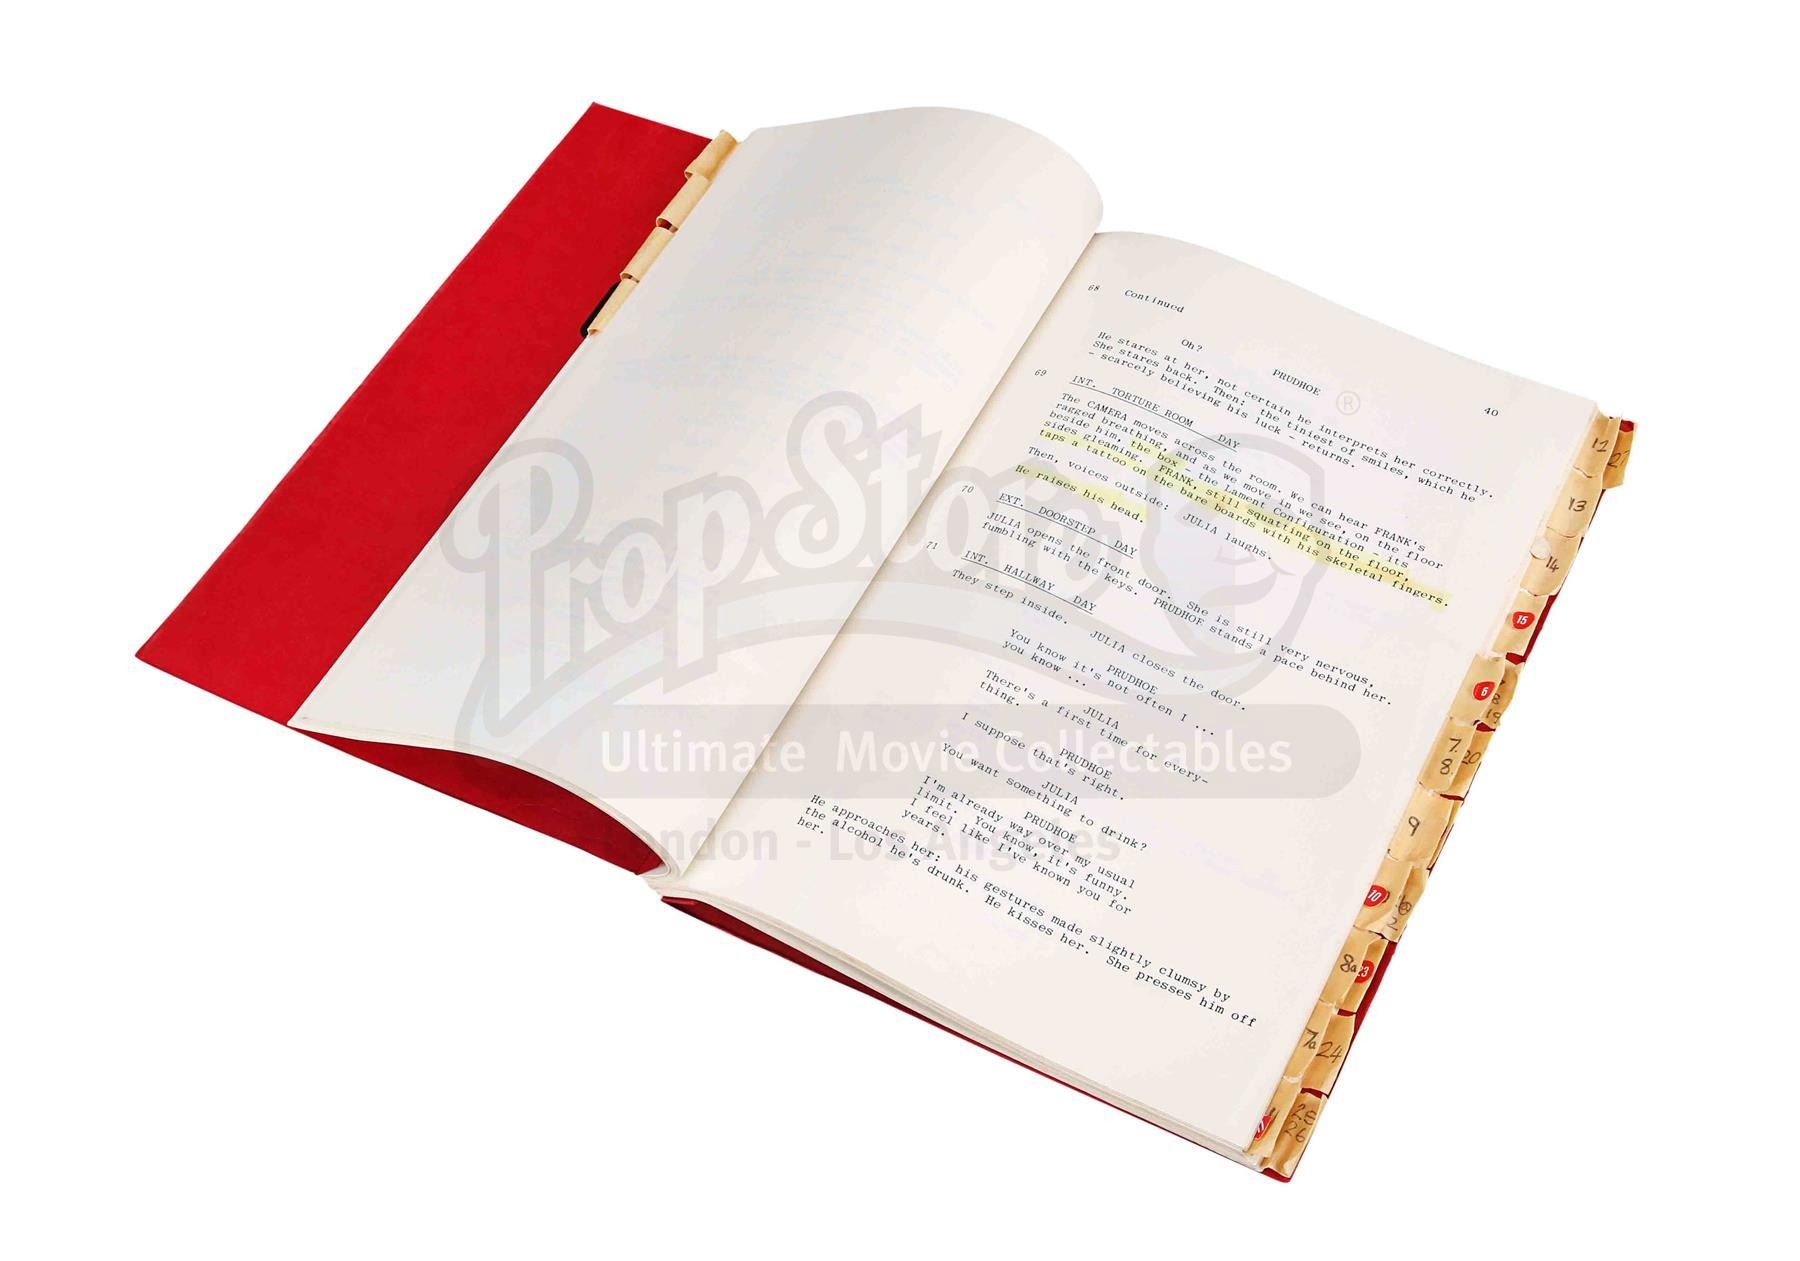 68 Continued
PRUDHOE
40
Oh?
He stares at her, not certain he interprets her correctly.
She stares back. Then: the tiniest of smiles, which he
- scarcely believing his luck - returns.
69 INT. TORTURE ROOM DAY
The CAMERA moves across the room. We can hear FRANK's
ragged breathing, and as we move in we see, on the floor
beside him, the box - the Lament Configuration - its
sides gleaming. FRANK, still squatting on the floor,
taps a tattoo on the bare boards with his skeletal fingers.
Then, voices outside: JULIA laughs.
He raises his head.
70 EXT. DOORSTEP DAY
JULIA opens the front door. She is still very nervous,
fumbling with the keys. PRUDHOE stands a pace behind her.
71 INT. HALLWAY DAY
They step inside. JULIA closes the door.
PRUDHOE
You know it's not often I ...
you know ...
JULIA
There's a first time for every-
thing.
PRUDHOE
I suppose that's right.
JULIA
You want something to drink?
PRUDHOE
I'm already way over my usual
limit. You know, it's funny.
I feel like I've known you for
years.
He approaches her: his gestures made slightly clumsy by
the alcohol he's drunk. He kisses her. She presses him off
her.
12
27
13
14
15
6
7
20
8
9
10
2
8a
23
7a
24
25
26
PropStore
®
Ultimate Movie Collectables
London - Los Angeles